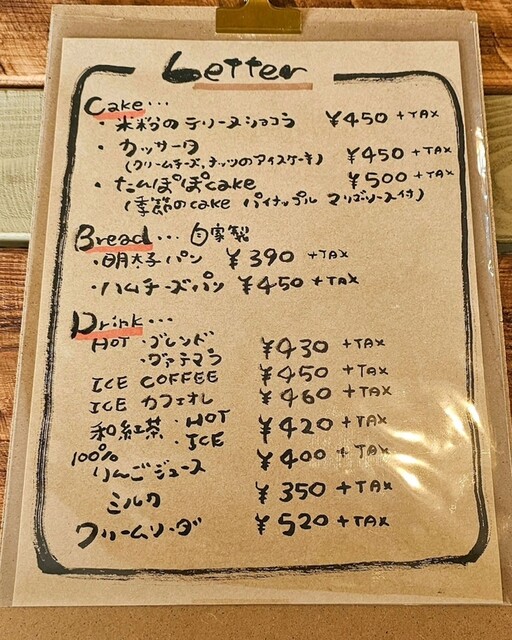 Letter
Cake...
・米粉のテリーヌショコラ ¥450 +TAX
・カッサータ
(クリームチーズ、ナッツのアイスケーキ) ¥450 +TAX
・たんぽぽcake ¥500 +TAX
(季節のcake パイナップル マリゴソース付)
Bread... 自家製
・明太子パン ¥390 +TAX
・ハムチーズパン ¥450 +TAX
Drink...
HOT ・ブレンド ¥430 +TAX
・グァテマラ ¥450 +TAX
ICE COFFEE ¥460 +TAX
ICE カフェオレ
和紅茶 ・HOT ¥420 +TAX
・ICE
100% りんごジュース ¥400 +TAX
ミルク ¥350 +TAX
クリームソーダ ¥520 +TAX